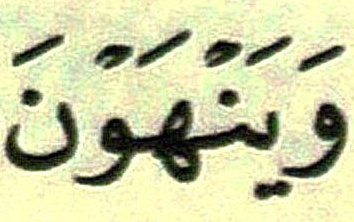 وَيَنْهَوْنَ